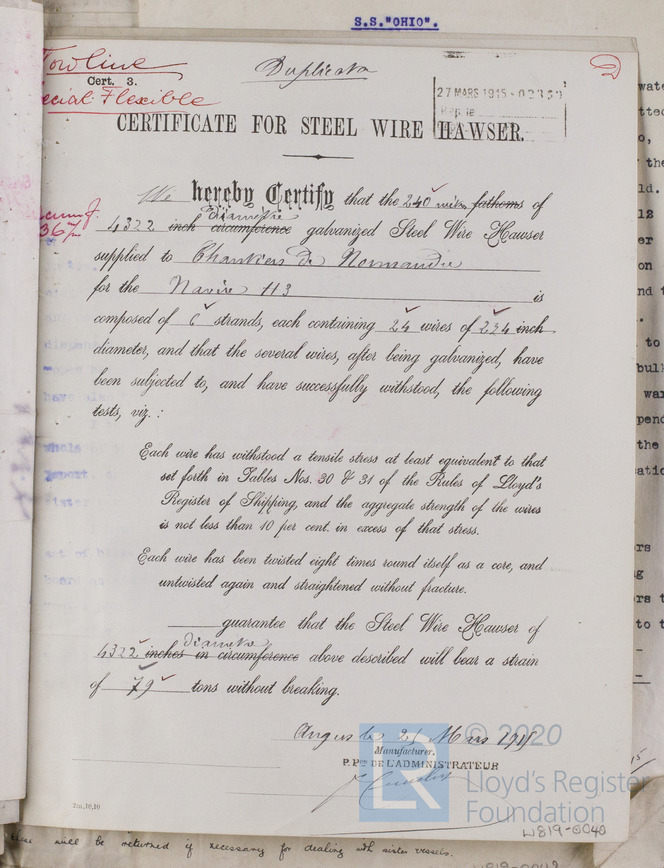 S.S."OHIO".
Towline
Cert. 3.
Special Flexible
Duplicata
27 MARS 1915
CERTIFICATE FOR STEEL WIRE HAWSER.
We hereby Certify that the 240 fathoms of
4322 inch circumference diametre galvanized Steel Wire Hawser
367
supplied to Chantiers de Normandie
for the Navire H3 is
composed of 6 strands, each containing 24 wires of 234 inch
diameter, and that the several wires, after being galvanized, have
been subjected to, and have successfully withstood, the following
tests, viz. :
Each wire has withstood a tensile stress at least equivalent to that
set forth in Tables Nos. 30 & 31 of the Rules of Lloyd's
Register of Shipping, and the aggregate strength of the wires
is not less than 10 per cent. in excess of that stress.
Each wire has been twisted eight times round itself as a core, and
untwisted again and straightened without fracture.
guarantee that the Steel Wire Hawser of
4322 inches in circumference diametre above described will bear a strain
of 79 tons without breaking.
Angers le 25 Mars 1915
Manufacturer.
P. Pon DE L'ADMINISTRATEUR
2m,10,10
© 2020
LR
Lloyd's Register
Foundation
W819-0040
will be returned if necessary for dealing with sister vessels.